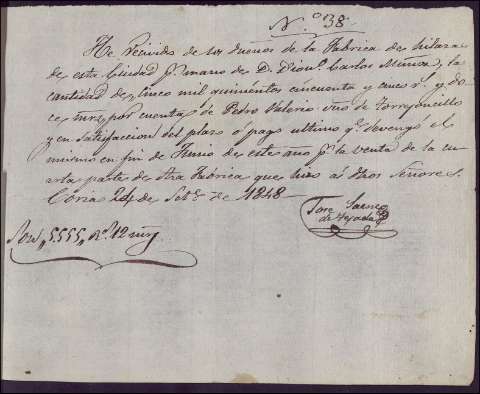 N.º 38.
He Recivido de los dueños de la Fabrica de hilaza
de esta Ciudad p.r mano de D. Dion.o Carlos Muñoz, la
cantidad de cinco mil quinientos cincuenta y cinco r.s y do
ce mrs, por cuenta de Pedro Valerio vno de Torrejoncillo
y en satisfaccion del plazo ó pago ultimo q.e devengó el
mismo en fin de Junio de este año p.r la venta de la cu
arta parte de dha Fabrica que hizo á dhos Señores.
Coria 24 de Set.e de 1848
Jose
de Tejada
Son 5555 r.s 12 mrs